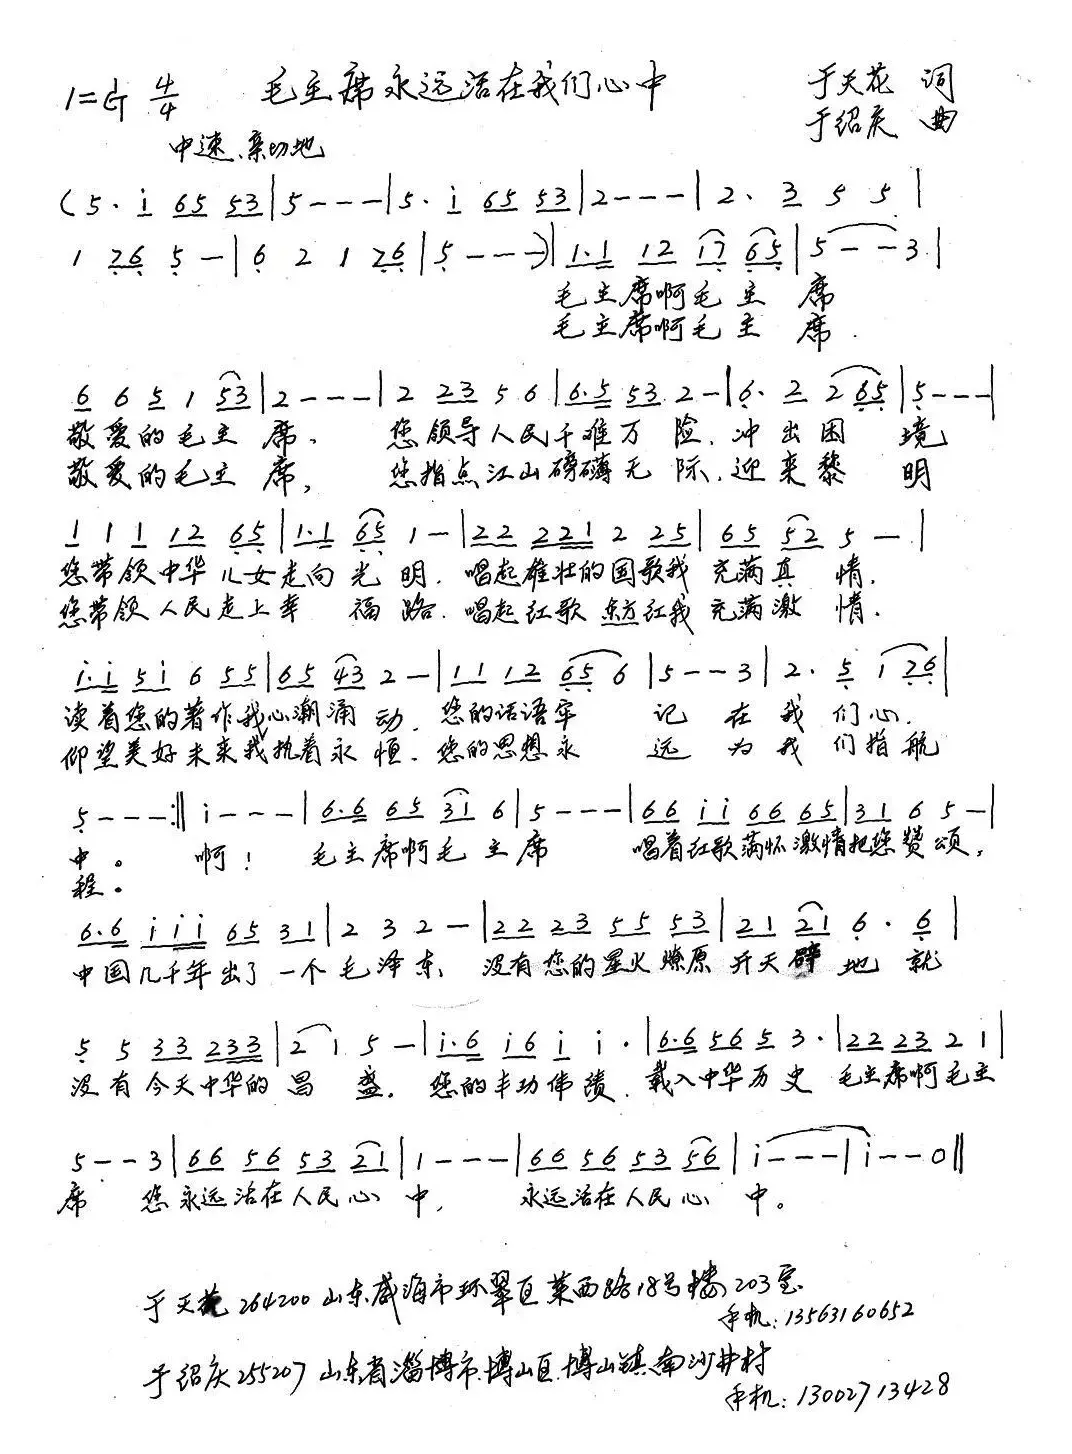 1=G 4/4 毛主席永远活在我们心中 于天花 词
中速、亲切地 于绍庆 曲
(5· i 65 53|5---|5· i 65 53|2---|2· 3 5 5|
1 26 5-|6 2 1 26|5---)|1·1 12 17 65|5--3|
毛主席啊毛 主 席
毛主席啊毛 主 席.
6 6 5 1 53|2---|2 23 5 6|6·5 53 2-|6· 2 2 65|5---|
敬爱的毛主 席. 您领导人民千难万 险. 冲出困 境
敬爱的毛主 席, 您指点江山磅礴无 际. 迎来黎 明
1 1 1 12 65|1·1 65 1-|22 221 2 25|65 52 5-|
您带领中华儿女走向光 明. 唱起雄壮的国歌我 充满真 情.
您带领人民走上幸 福 路. 唱起红歌东方红我 充满激 情.
i·i 5i 6 55|65 43 2-|11 12 65 6|5--3|2· 5 1 26|
读着您的著作我心潮涌 动. 您的话语牢 记 在 我 们心.
仰望美好未来我执着永 恒. 您的思想永 远 为 我 们指航
5---:‖i---|6·6 65 31 6|5---|66 ii 66 65|31 6 5-|
中。 啊! 毛主席啊毛 主 席 唱着红歌满怀激情把您赞颂,
程。
6·6 iii 65 31|2 3 2-|22 23 55 53|21 21 6· 6|
中国几千年出了一个毛泽东、 没有您的星火燎原 开天辟 地 就
5 5 33 233|2 1 5-|i·6 i6 i i·|6·6 56 5 3·|22 23 2 1|
没有今天中华的昌 盛. 您的丰功伟绩. 载入中华历史 毛主席啊毛主
5--3|66 56 53 21|1---|66 56 53 56|i---|i--0‖
席 您永远活在人民心 中, 永远活在人民心 中。
于天花 264200 山东威海市环翠区莱西路18号楼203室
手机:13563160652
于绍庆 255207 山东省淄博市.博山区.博山镇.南沙井村
手机:13002713428